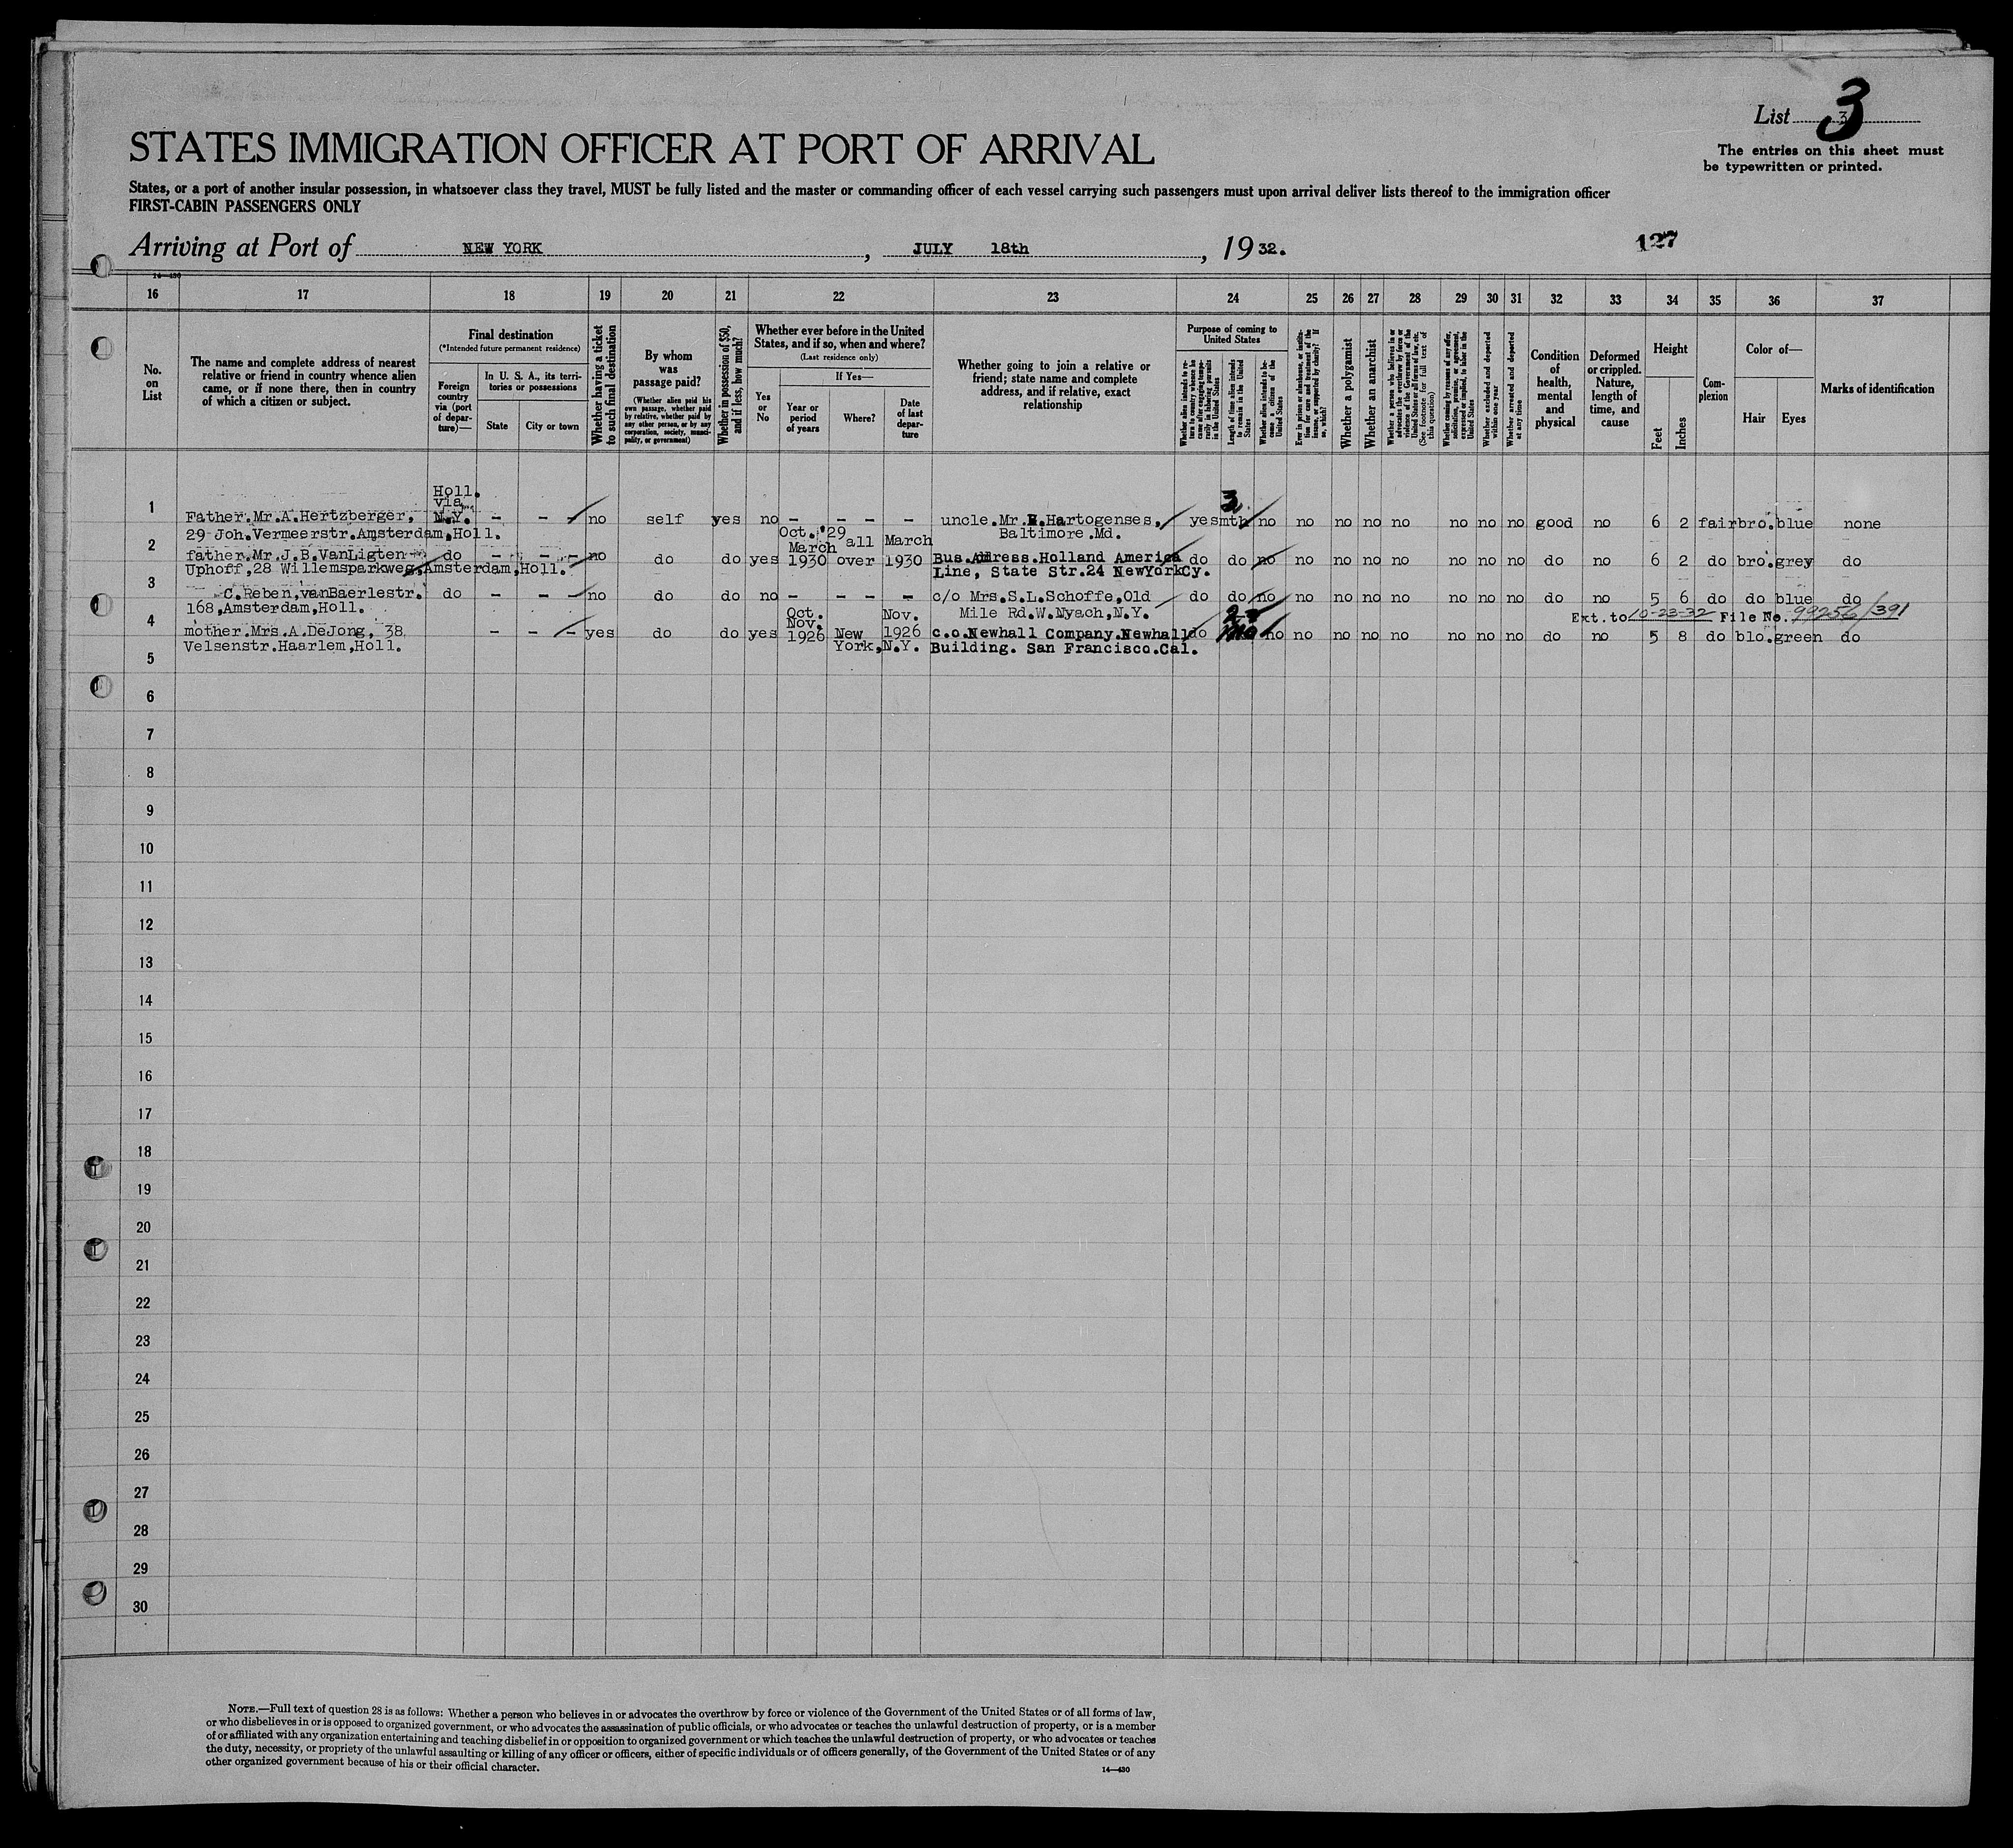 List 3
3
The entries on this sheet must
be typewritten or printed.
STATES IMMIGRATION OFFICER AT PORT OF ARRIVAL
States, or a port of another insular possession, in whatsoever class they travel, MUST be fully listed and the master or commanding officer of each vessel carrying such passengers must upon arrival deliver lists thereof to the immigration officer
FIRST-CABIN PASSENGERS ONLY
Arriving at Port of NEW YORK, JULY 18th, 1932.
127
14—430
16 17 18 19 20 21 22 23 24 25 26 27 28 29 30 31 32 33 34 35 36 37
No.
on
List
The name and complete address of nearest
relative or friend in country whence alien
came, or if none there, then in country
of which a citizen or subject.
Final destination
(*Intended future permanent residence)
Foreign
country
via (port
of depar-
ture)—
In U. S. A., its terri-
tories or possessions
State
City or town
Whether having a ticket
to such final destination
By whom
was
passage paid?
(Whether alien paid his
own passage, whether paid
by relative, whether paid by
any other person, or by any
corporation, society, munici-
pality, or government)
Whether in possession of $50,
and if less, how much?
Whether ever before in the United
States, and if so, when and where?
(Last residence only)
Yes
or
No
If Yes—
Year or
period
of years
Where?
Date
of last
depar-
ture
Whether going to join a relative or
friend; state name and complete
address, and if relative, exact
relationship
Purpose of coming to
United States
Whether alien intends to re-
turn to country whence he
came after engaging tempo-
rarily in laboring pursuits
in the United States
Length of time alien intends
to remain in the United
States
Whether alien intends to be-
come a citizen of the
United States
Ever in prison or almshouse, or institu-
tion for care and treatment of the
insane, or supported by charity? If
so, which?
Whether a polygamist
Whether an anarchist
Whether a person who believes in or
advocates the overthrow by force or
violence of the Government of the
United States or all forms of law, etc.
(See footnote for full text of
this question)
Whether coming by reason of any offer,
solicitation, promise, or agreement,
expressed or implied, to labor in the
United States
Whether excluded and deported
within one year
Whether arrested and deported
at any time
Condition
of
health,
mental
and
physical
Deformed
or crippled.
Nature,
length of
time, and
cause
Height
Feet
Inches
Com-
plexion
Color of—
Hair
Eyes
Marks of identification
Holl.
via
3
1 Father.Mr.A.Hertzberger, N.Y. - - - no self yes no - - - - uncle.Mr.H.Hartogenses, yes mth no no no no no no no no good no 6 2 fair bro. blue none
29 Joh.Vermeerstr.Amsterdam,Holl. Oct.'29 Baltimore.Md.
March all March
2 father.Mr.J.B.VanLigten do - - - no do do yes 1930 over 1930 Bus.Address.Holland America do do no no no no no no no no do no 6 2 do bro. grey do
Uphoff,28 Willemsparkweg,Amsterdam,Holl. Line, State Str.24 NewYorkCy.
3 C.Reben,vanBaerlestr. do - - - no do do no - - - - c/o Mrs.S.L.Schoffe,Old do do no no no no no no no no do no 5 6 do do blue do
168,Amsterdam,Holl. Oct. Nov. Mile Rd.W.Nyach,N.Y. Ext. to 10-23-32 File No. 99256/391
Nov.
4 mother.Mrs.A.DeJong, 38 - - - yes do do yes 1926 New 1926 c.o.Newhall Company.Newhall do no no no no no no no no do no 5 8 do blo. green do
Velsenstr.Haarlem,Holl. York,N.Y. Building. San Francisco.Cal.
5
6
7
8
9
10
11
12
13
14
15
16
17
18
19
20
21
22
23
24
25
26
27
28
29
30
NOTE.—Full text of question 28 is as follows: Whether a person who believes in or advocates the overthrow by force or violence of the Government of the United States or of all forms of law,
or who disbelieves in or is opposed to organized government, or who advocates the assassination of public officials, or who advocates or teaches the unlawful destruction of property, or is a member
of or affiliated with any organization entertaining and teaching disbelief in or opposition to organized government or which teaches the unlawful destruction of property, or who advocates or teaches
the duty, necessity, or propriety of the unlawful assaulting or killing of any officer or officers, either of specific individuals or of officers generally, of the Government of the United States or of any
other organized government because of his or their official character.
14—430